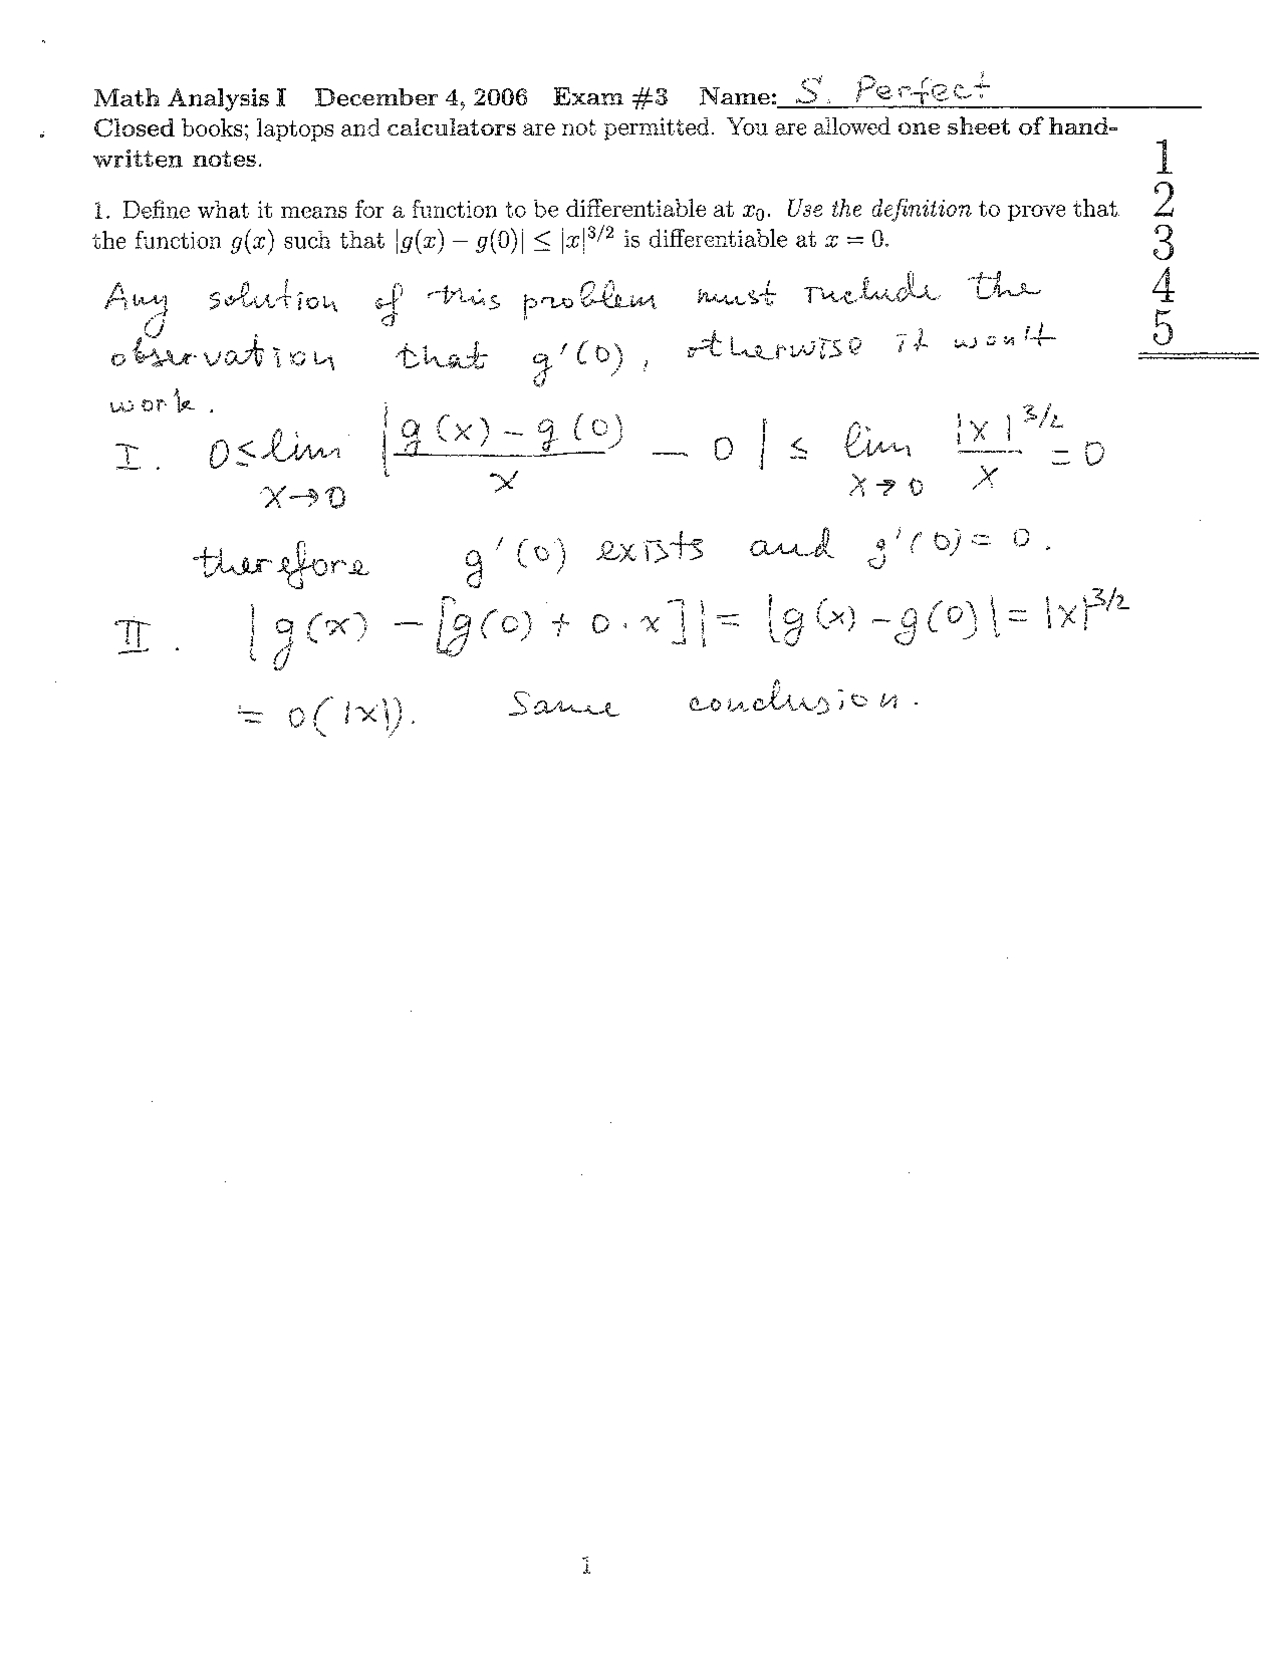 Math Analysis I December 4, 2006 Exam #3 Name: S. Perfect
Closed books; laptops and calculators are not permitted. You are allowed one sheet of hand-
written notes.
1
2
3
4
5
1. Define what it means for a function to be differentiable at x₀. Use the definition to prove that
the function g(x) such that |g(x) − g(0)| ≤ |x|^{3/2} is differentiable at x = 0.
Any solution of this problem must include the
observation that g'(0), otherwise it won't
work.
I. 0 ≤ lim_{x→0} |(g(x) − g(0))/x − 0| ≤ lim_{x→0} |x|^{3/2}/x = 0
therefore g'(0) exists and g'(0) = 0.
II. |g(x) − [g(0) + 0·x]| = |g(x) − g(0)| = |x|^{3/2}
= o(|x|). Same conclusion.
1